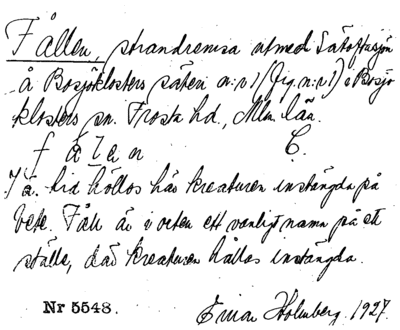 Fållen, strandremsa utmed Sätoftasjön
å Bosjöklosters säteri n:r 1 (Jrg. n:r 1) i Bosjö
klosters sn. Frosta hd., Mlm. län.
fålan C.
I ä. tid höllos här kreaturen instängda på
bete. Fåll är i orten ett vanligt namn på ett
ställe, där kreaturen hållas instängda.
Nr 5548.
Holmberg. 1927.